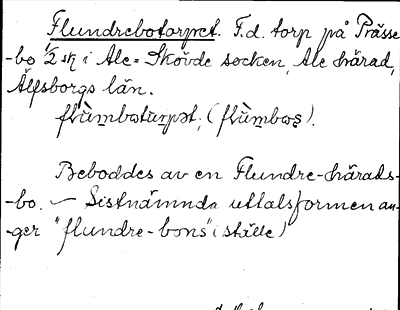 Flundrebotorpet. F.d. torp på Prässe-
-bo 1/2 sk i Ale-Skövde socken, Ale härad,
Älfsborgs län.
flùmbɷturpət, (flùmbɷs).
Beboddes av en Flundre-härads-
-bo. — Sistnämnda uttalsformen an-
-ger "flundre-bons" (ställe)